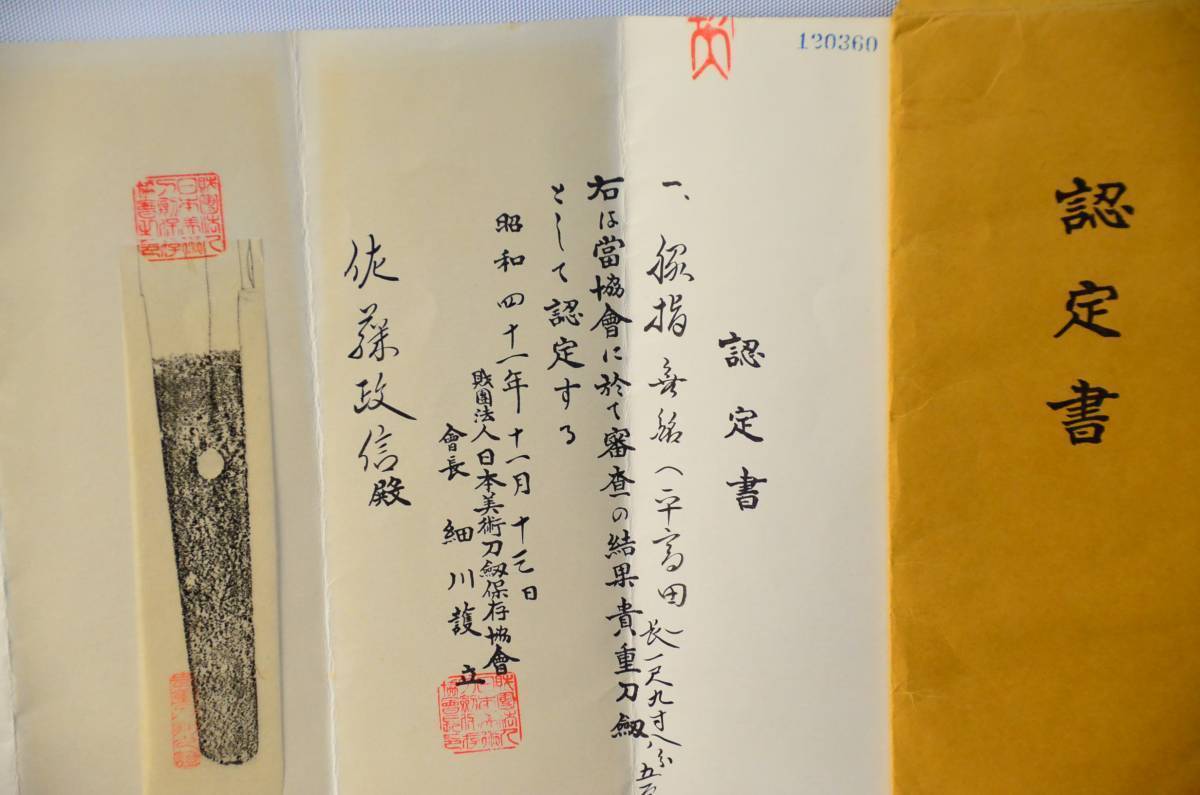 認定書
120360
認定書
一、脇指 無銘(平高田 長一尺九寸八分
右は當協會に於て審査の結果貴重刀劔
として認定する
昭和四十一年十一月十三日
財團法人日本美術刀劔保存協會
會長 細川護立
佐藤政信殿